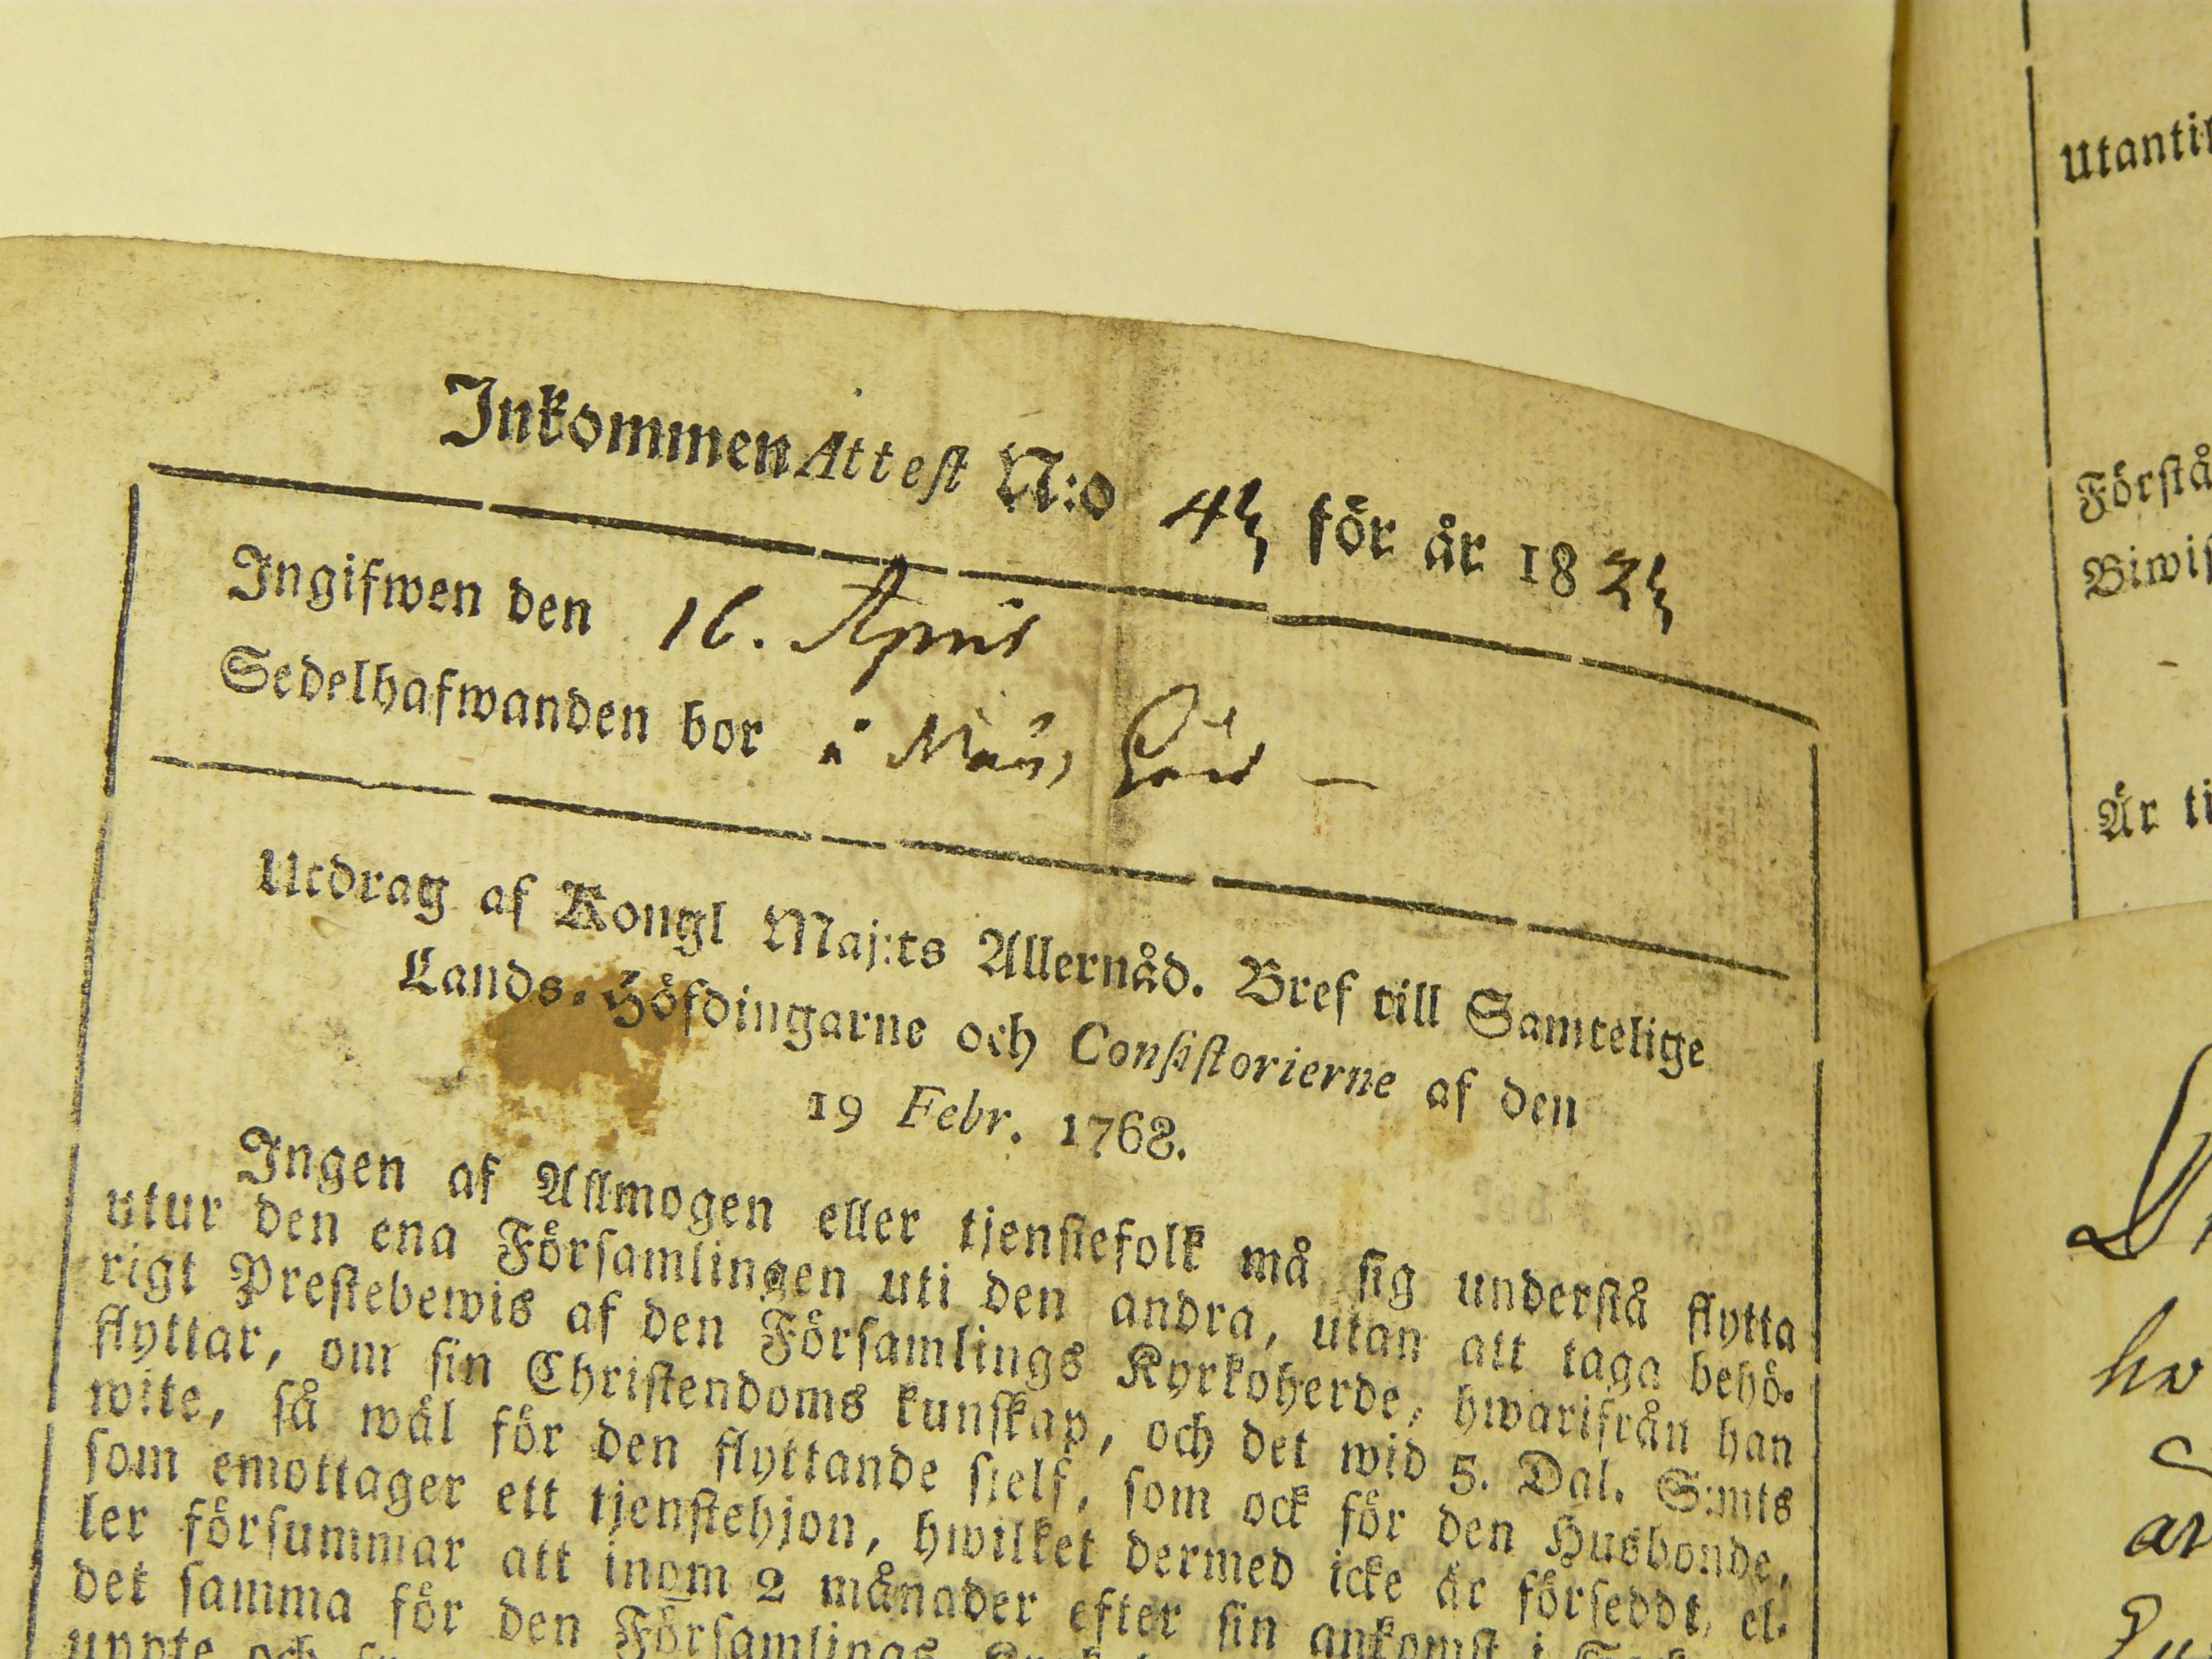 Inkommen Attest N:o 45 för år 1825
Ingifwen den 16. April
Sedelhafwanden bor i
Utdrag af Kongl Maj:ts Allernåd. Bref till Samtelige
Lands-Höfdingarne och Consistorierne af den
19 Febr. 1768.
Ingen af Allmogen eller tjenstefolk må sig understå flytta
utur den ena Församlingen uti den andra, utan att taga behö-
rigt Prestebewis af den Församlings Kyrkoherde, hwarifrån han
flyttar, om sin Christendoms kunskap, och det wid 5. Dal. S:mts
wite, så wäl för den flyttande sjelf, som ock för den Husbonde,
som emottager ett tjenstehjon, hwilket dermed icke är förseddt, el-
ler försummar att inom 2 månader efter sin ankomst i
det samma för den Församlings
uppte och
Utantil
Förstå
Biwis
Är ti